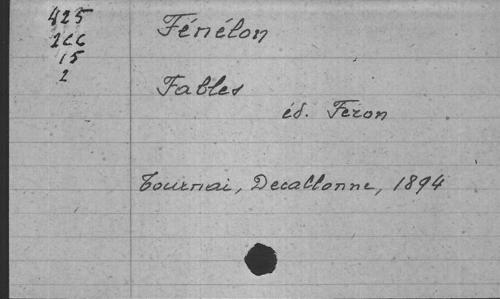 425
266
15
2
Fénélon
Fables
éd. Féron
Tournai, Decallonne, 1894